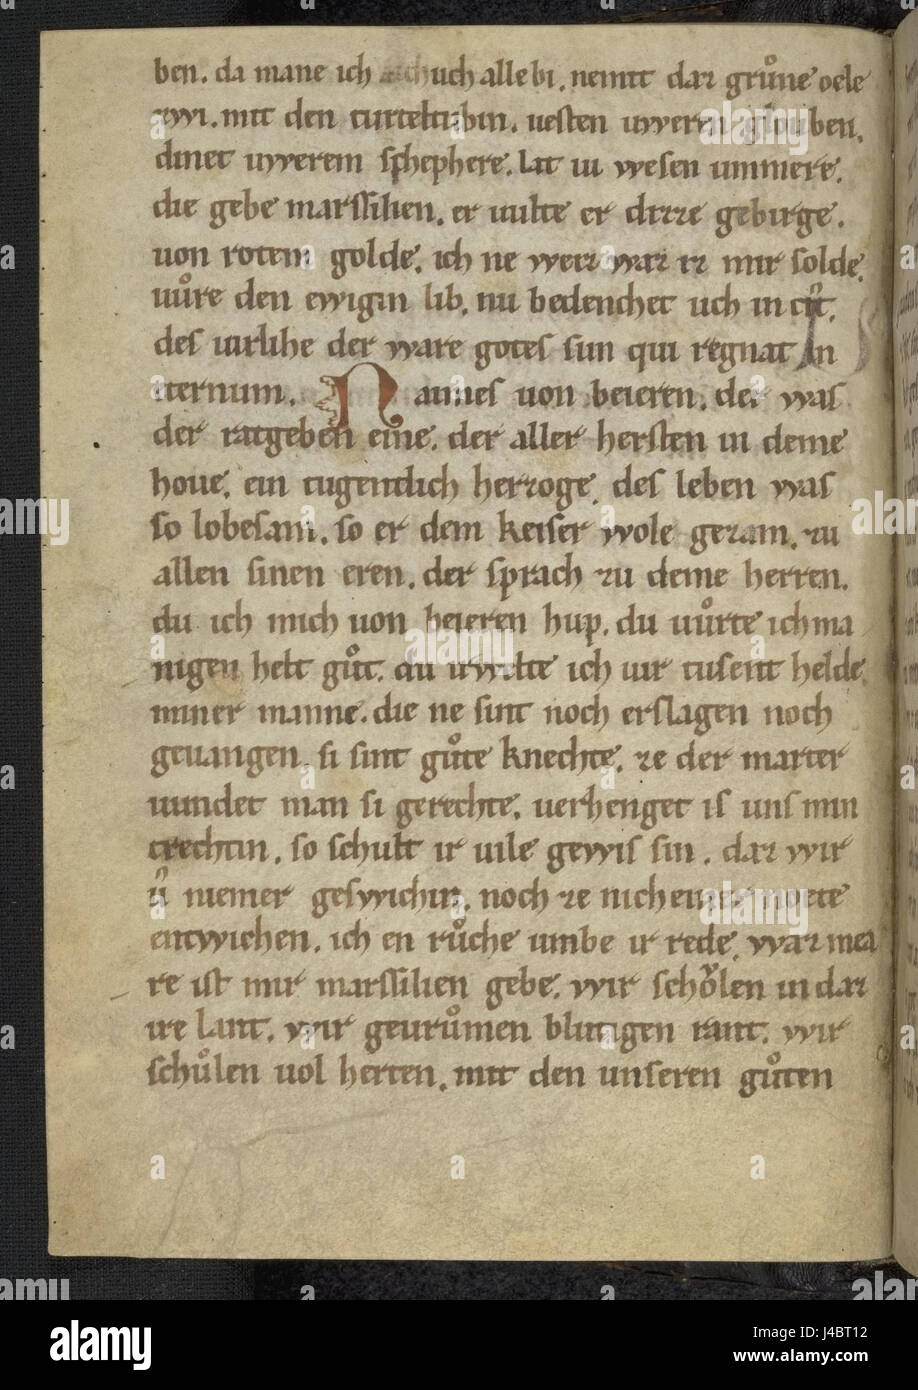 ben. da mane ich uch alle bi. nemit daz gruͦne oele
zwi. mit den turteltubin. uesten uwern glouben.
dinet uwerem schephere. lat iu wesen ummere.
die gebe marssilien. er uulte er dizze gebirge.
uon rotem golde. ich ne weiz waz iz mir solde.
uuͦre den ewigin lib. nu bedenchet uch in cit.
des uirlihe der ware gotes sun qui regnat in
eternum. Naimes uon beieren. der was
der ratgeben eine. der aller hersten in deme
houe. ein tugentlich herzoge. des leben was
so lobesam. so er dem keiser wole gezam. zu
allen sinen eren. der sprach zu deme herren.
du ich mich uon beieren hup. du uuͦrte ich ma
nigen helt guͦt. du irwelte ich uir tusent helde
miner manne. die ne sint noch erslagen noch
geuangen. si sint guͦte knechte. ze der marter
uundet man si gerechte. uerhenget is uns min
trechtin. so schult ir uile gewis sin. daz wir
uͦ niemer geswichin. noch ze nicheiner noete
entwichen. ich en ruͦche umbe ir rede. waz mea
re ist mir marssilien gebe. wir schoͮlen in daz
ire lant. wir geuruͦmen blutigen rant. wir
schuͦlen uol herten. mit den unseren guͦten
alamy stock photo
alamy
Image ID: J4BT12
www.alamy.com